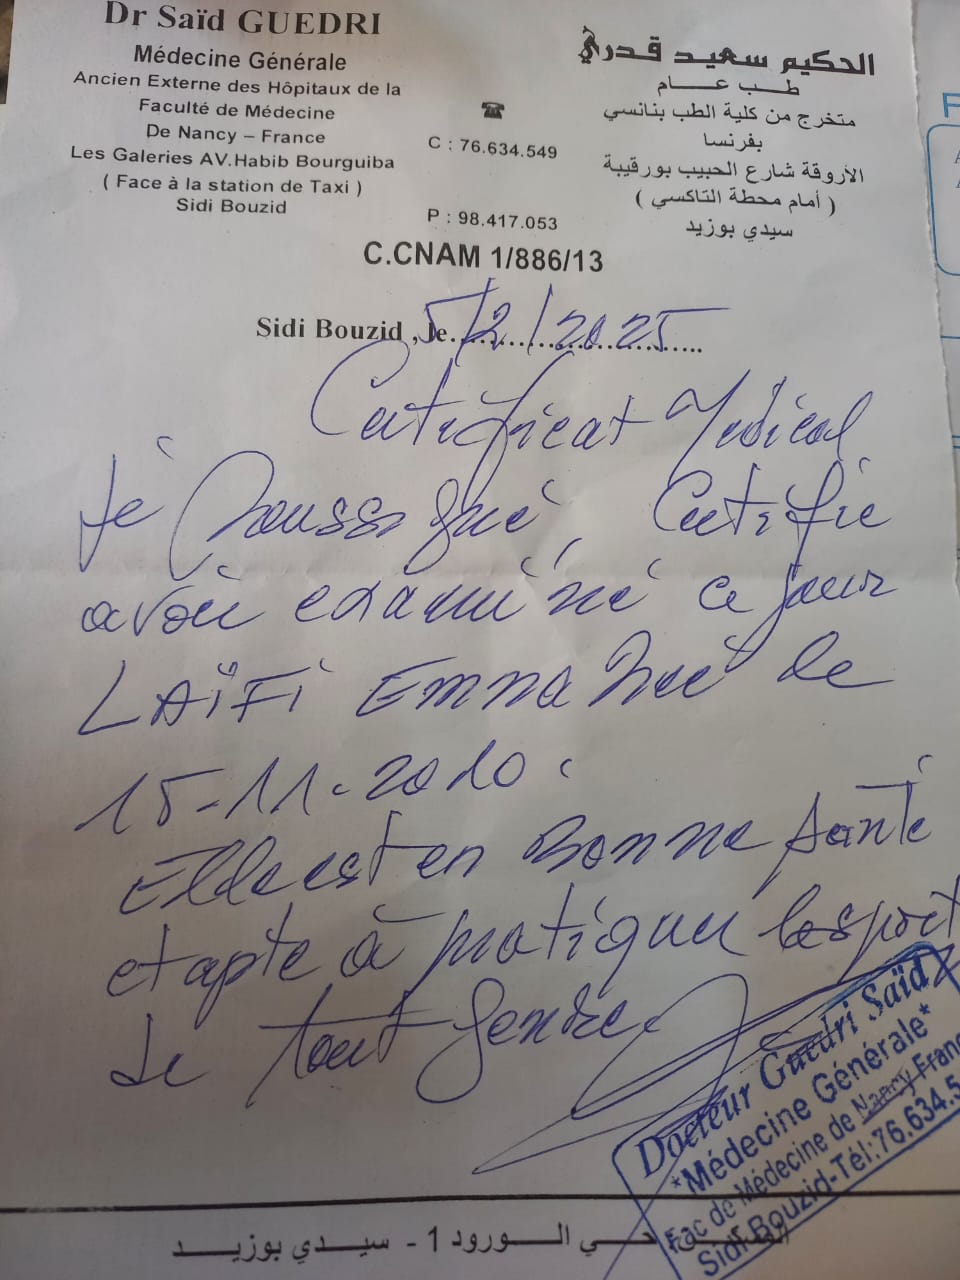 Dr Saïd GUEDRI
Médecine Générale
Ancien Externe des Hôpitaux de la
Faculté de Médecine
De Nancy – France
Les Galeries AV.Habib Bourguiba
( Face à la station de Taxi )
Sidi Bouzid
☎
C : 76.634.549
P : 98.417.053
الحكيم سعيد قدري
طب عام
متخرج من كلية الطب بنانسي
بفرنسا
الأروقة شارع الحبيب بورقيبة
( أمام محطة التاكسي )
سيدي بوزيد
C.CNAM 1/886/13
Sidi Bouzid ,le 5/2/2025
Certificat Médical
Je soussigné, Certifie
avoir examiné ce jour
LAÏFI Emna née le
15-11-2010.
Elle est en Bonne santé
et apte à pratiquer le sport
de tout genre.
Docteur Guedri Saïd
*Médecine Générale*
Fac de Médecine de Nancy Franc
Sidi Bouzid-Tél:76.634.5
حي الورود 1 - سيدي بوزيد